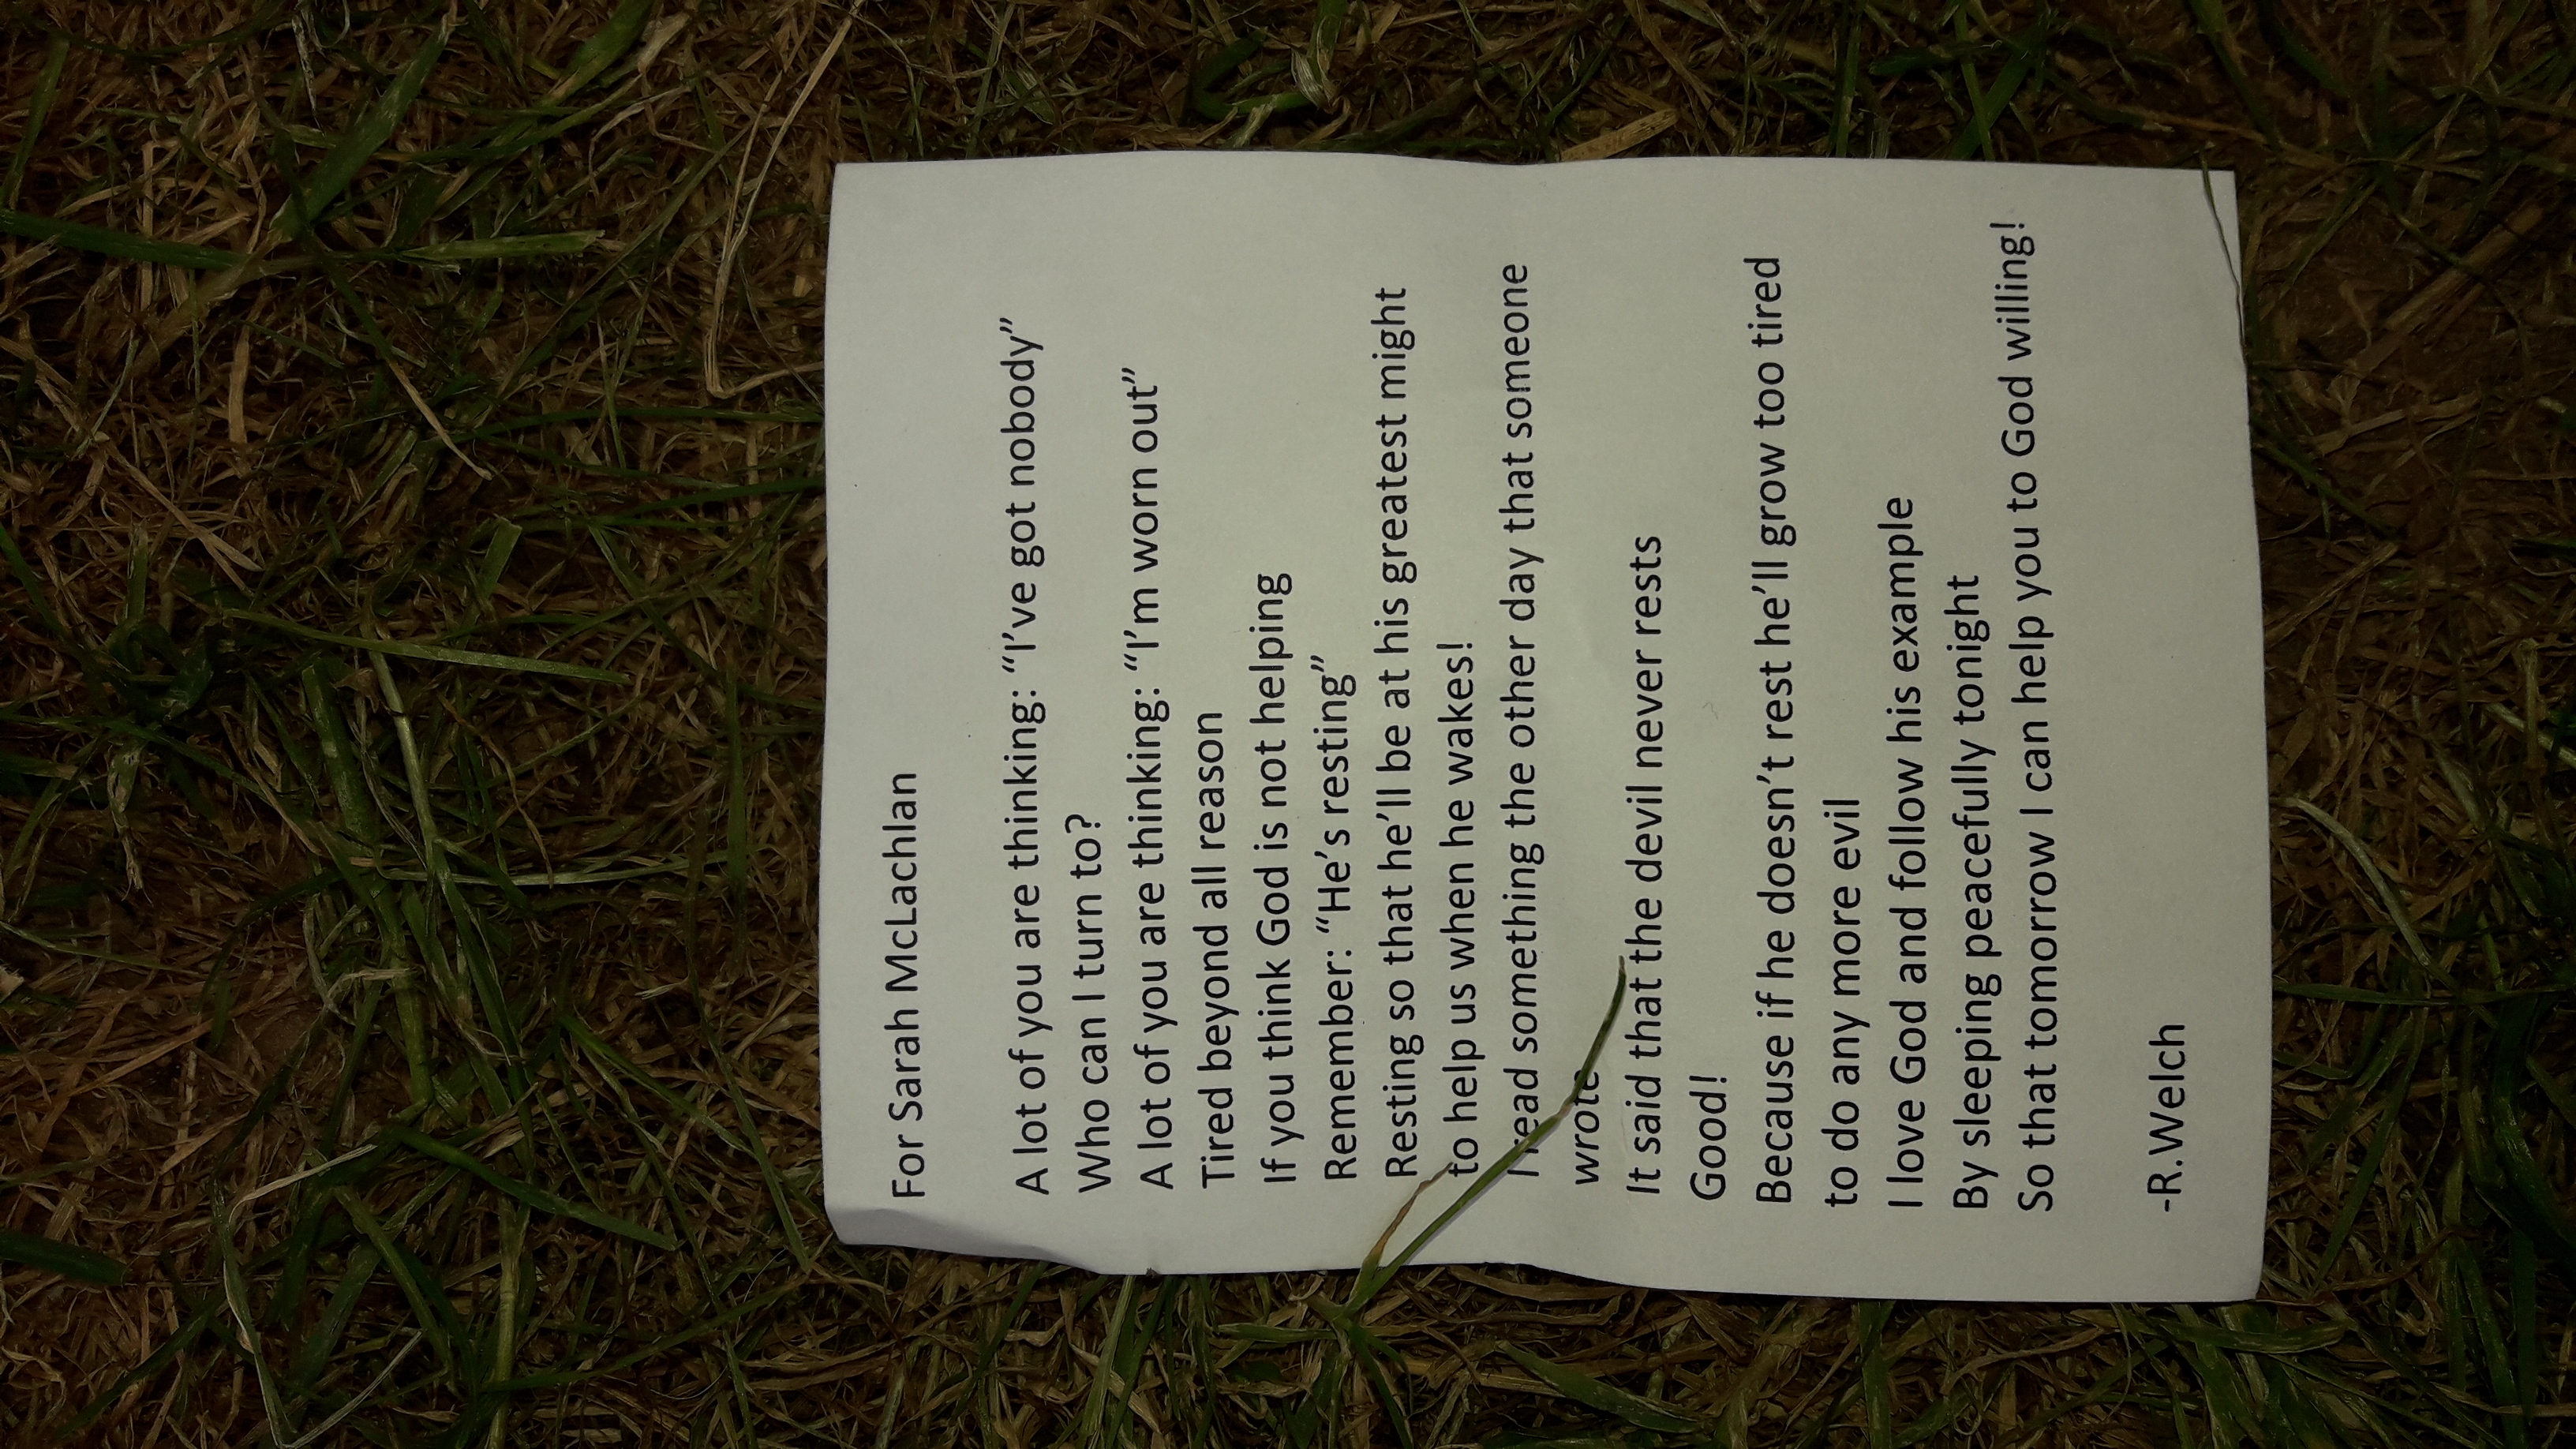 For Sarah McLachlan
A lot of you are thinking: “I’ve got nobody”
Who can I turn to?
A lot of you are thinking: “I’m worn out”
Tired beyond all reason
If you think God is not helping
Remember: “He’s resting”
Resting so that he’ll be at his greatest might
to help us when he wakes!
I read something the other day that someone
wrote
It said that the devil never rests
Good!
Because if he doesn’t rest he’ll grow too tired
to do any more evil
I love God and follow his example
By sleeping peacefully tonight
So that tomorrow I can help you to God willing!
-R.Welch